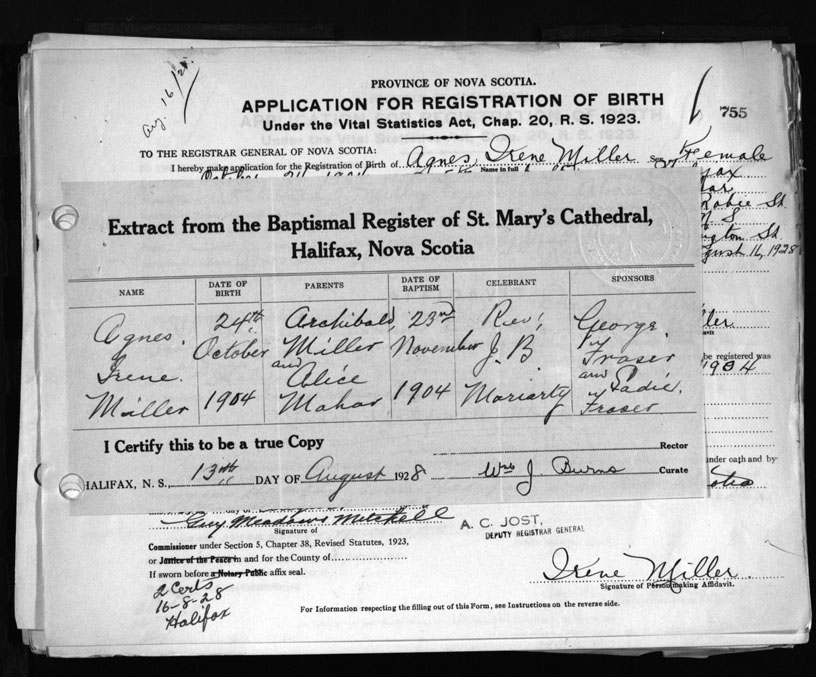 Aug. 16/28.
PROVINCE OF NOVA SCOTIA.
APPLICATION FOR REGISTRATION OF BIRTH
Under the Vital Statistics Act, Chap. 20, R. S. 1923.
755
TO THE REGISTRAR GENERAL OF NOVA SCOTIA:
I hereby make application for the Registration of Birth of Agnes Irene Miller Sex Female
Name in full
October 24
Robie St
N S
August 16, 1928
Extract from the Baptismal Register of St. Mary's Cathedral,
Halifax, Nova Scotia
NAME DATE OF BIRTH PARENTS DATE OF BAPTISM CELEBRANT SPONSORS
Agnes. 24th Archibald 23rd Rev. George
October Miller November J. B Fraser
Irene. and Alice and Sadie
Miller 1904 Mahar 1904 Moriarty Fraser
be registered was
1904
I Certify this to be a true Copy
Rector
under oath and by
HALIFAX, N. S., 13th DAY OF August 1928 Wm J. Burns Curate
Guy Meadows Mitchell
Signature of
A. C. JOST,
DEPUTY REGISTRAR GENERAL
Commissioner under Section 5, Chapter 38, Revised Statutes, 1923,
or Justice of the Peace in and for the County of
If sworn before a Notary Public affix seal.
Irene Miller
Signature of Person making Affidavit.
2 Certs
16-8-28
Halifax
For Information respecting the filling out of this Form, see Instructions on the reverse side.